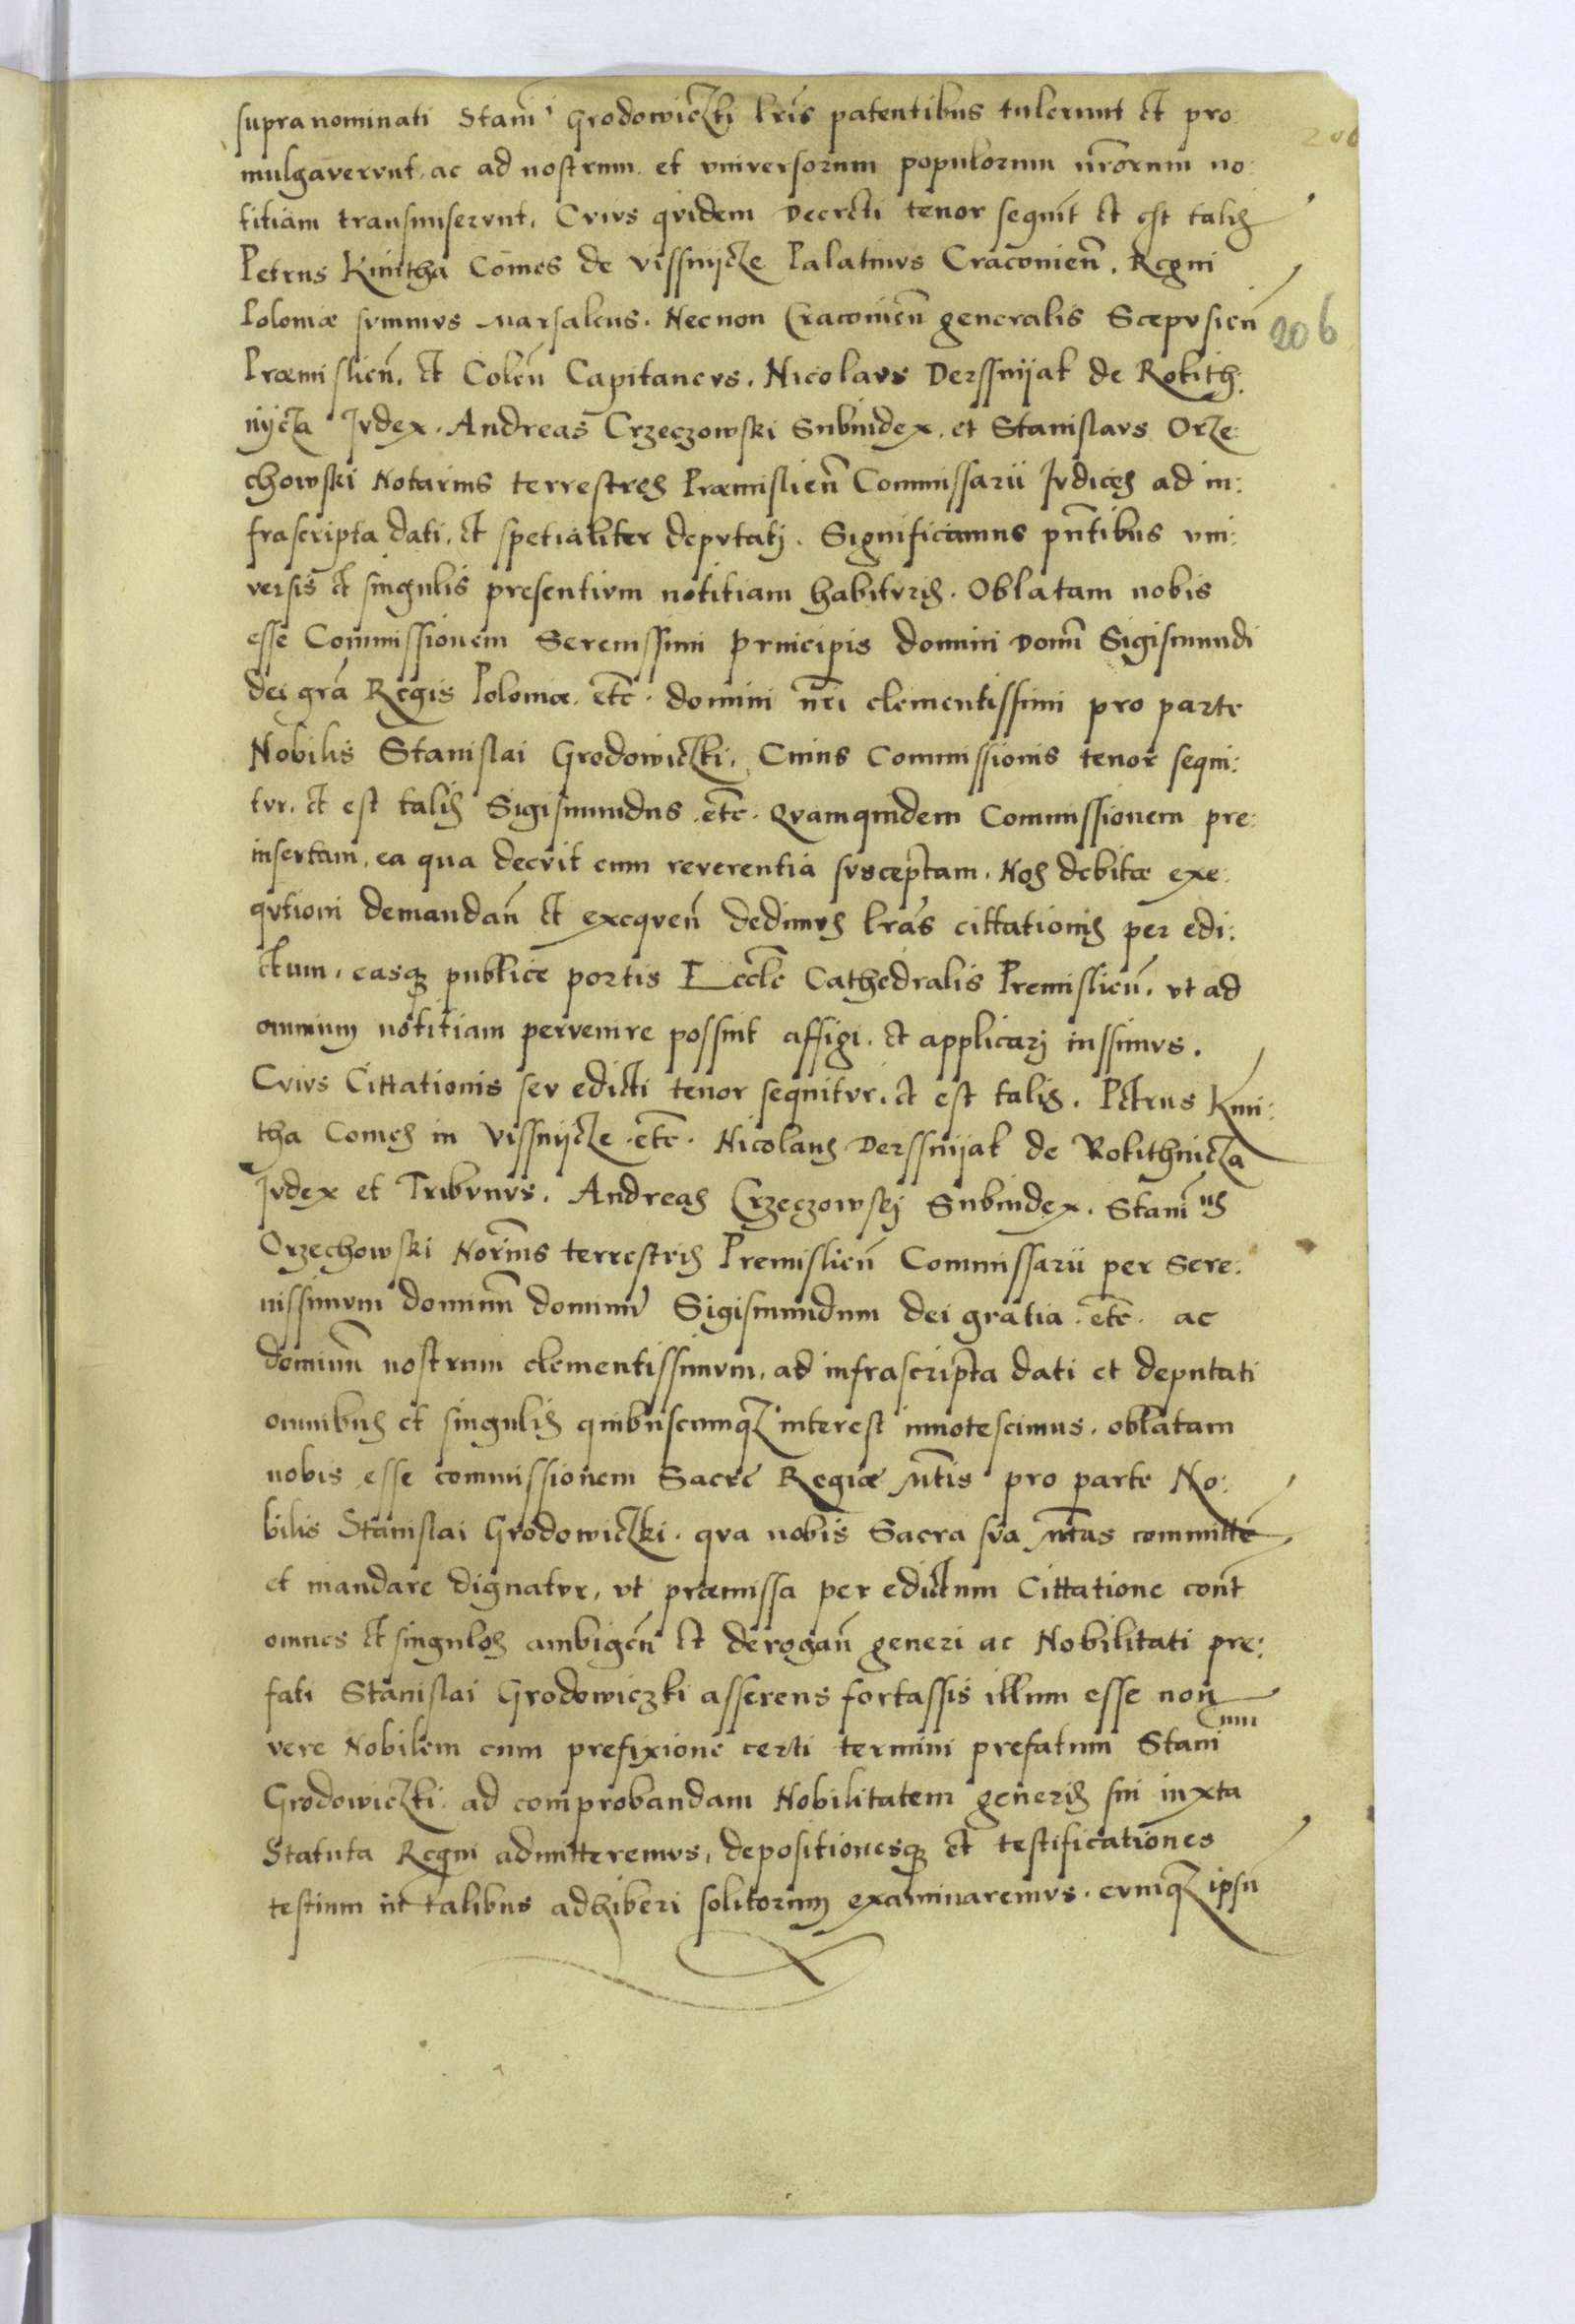 supranominati Stanĩ Grodowiczki lr̃is patentibus tulerunt et pro
206
mulgavervnt, ac ad nostrum et vniversorum populorum nr̃orum no:
titiam transmiservnt. Cvivs qvidem Decreti tenor sequit̃ et est talis
Petrus Kmitha Comes de Vissnijcze Palatinvs Cracovien̄. Regni
Poloniæ svmmvs Marsalcus. Necnon Cracovien̄ generalis Scepvsien̄
206
Præmislien̄. et Colen̄ Capitanevs. Nicolavs Derssnijak de Rokith:
nijcza Jvdex. Andreas Crzeczowski Subiudex. et Stanislavs Orze:
chowski Notarius terrestres Præmislien̄ Commissarii Jvdices ad in:
frascripta dati. et spetialiter depvtatj. Significamus pn̄tibus vni:
versis et singulis presentivm notitiam habitvris. Oblatam nobis
esse Commissionem Serenissimi Principis domini Domī Sigismundi
dei gr̃a Regis Poloniæ. etc̄. domini nr̃i clementissimi pro parte
Nobilis Stanislai Grodowiczki. Cuius Commissionis tenor sequi:
tvr. et est talis Sigismundus .etc̄. Qvamquidem Commissionem pre:
insertam, ea qua decvit cum reverentia svsceptam. Nos debitæ exe:
qvtioni demandan̄ et exeqven̄ dedimvs lr̃as cittationis per edi:
ctum. easq; publice portis Eccl̄e Cathedralis Premislien̄. vt ad
omnium notitiam pervenire possint affigi. et applicarj iussimvs.
Cvivs Cittationis sev edicti tenor sequitvr. et est talis. Petrus Kmi:
tha Comes in Vissnijcze .etc̄. Nicolaus Derssnijak de Rokithnicza
Jvdex et Tribvnvs. Andreas Crzeczowskj Subiudex. Stanīus
Orzechowski Nor̃ius terrestris Premislien̄ Commissarii per Sere:
nissimvm dominū dominū Sigismundum dei gratia .etc̄. ac
dominū nostrum clementissimvm. ad infrascripta dati et deputati
omnibus et singulis quibuscumqz interest innotescimus. oblatam
nobis esse commissionem Sacrę Regiæ Mt̄is pro parte No:
bilis Stanislai Grodowiczki. qva nobis Sacra sva Mt̄as committe
et mandare dignatvr, vt præmissa per edictum Cittatione cont̄
omnes et singulos ambigen̄ et derogan̄ generi ac Nobilitati pre:
fati Stanislai Grodowiczki asserens fortassis illum esse non
vere Nobilem cum prefixione certi termini prefatum Stanīum
Grodowiczki ad comprobandam Nobilitatem generis sui iuxta
Statuta Regni admitteremvs, depositionesq; et testificationes
testium in talibus adhiberi solitorum examinaremvs. evmqz ipsū